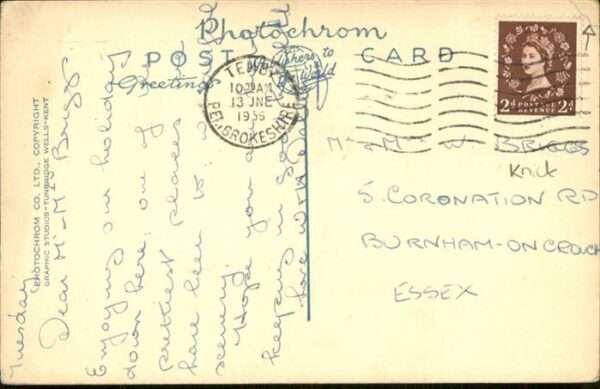 Photochrom
POST CARD
Publishers to
the World
Greetings
TENBY
10 AM
13 JNE
1956
PEMBROKESHIRE
2d POSTAGE 2d
REVENUE
PHOTOCHROM CO. LTD., COPYRIGHT
GRAPHIC STUDIOS-TUNBRIDGE WELLS-KENT
Tuesday
Dear Mr & Mrs Briggs
Enjoying our holiday
down here, one of the
prettiest places we
have been to.
scenery.
Hope you are
keeping in good
Love
Mr & Mrs W BRIGGS
Knick
5. CORONATION RD
BURNHAM-ON-CROUCH
ESSEX